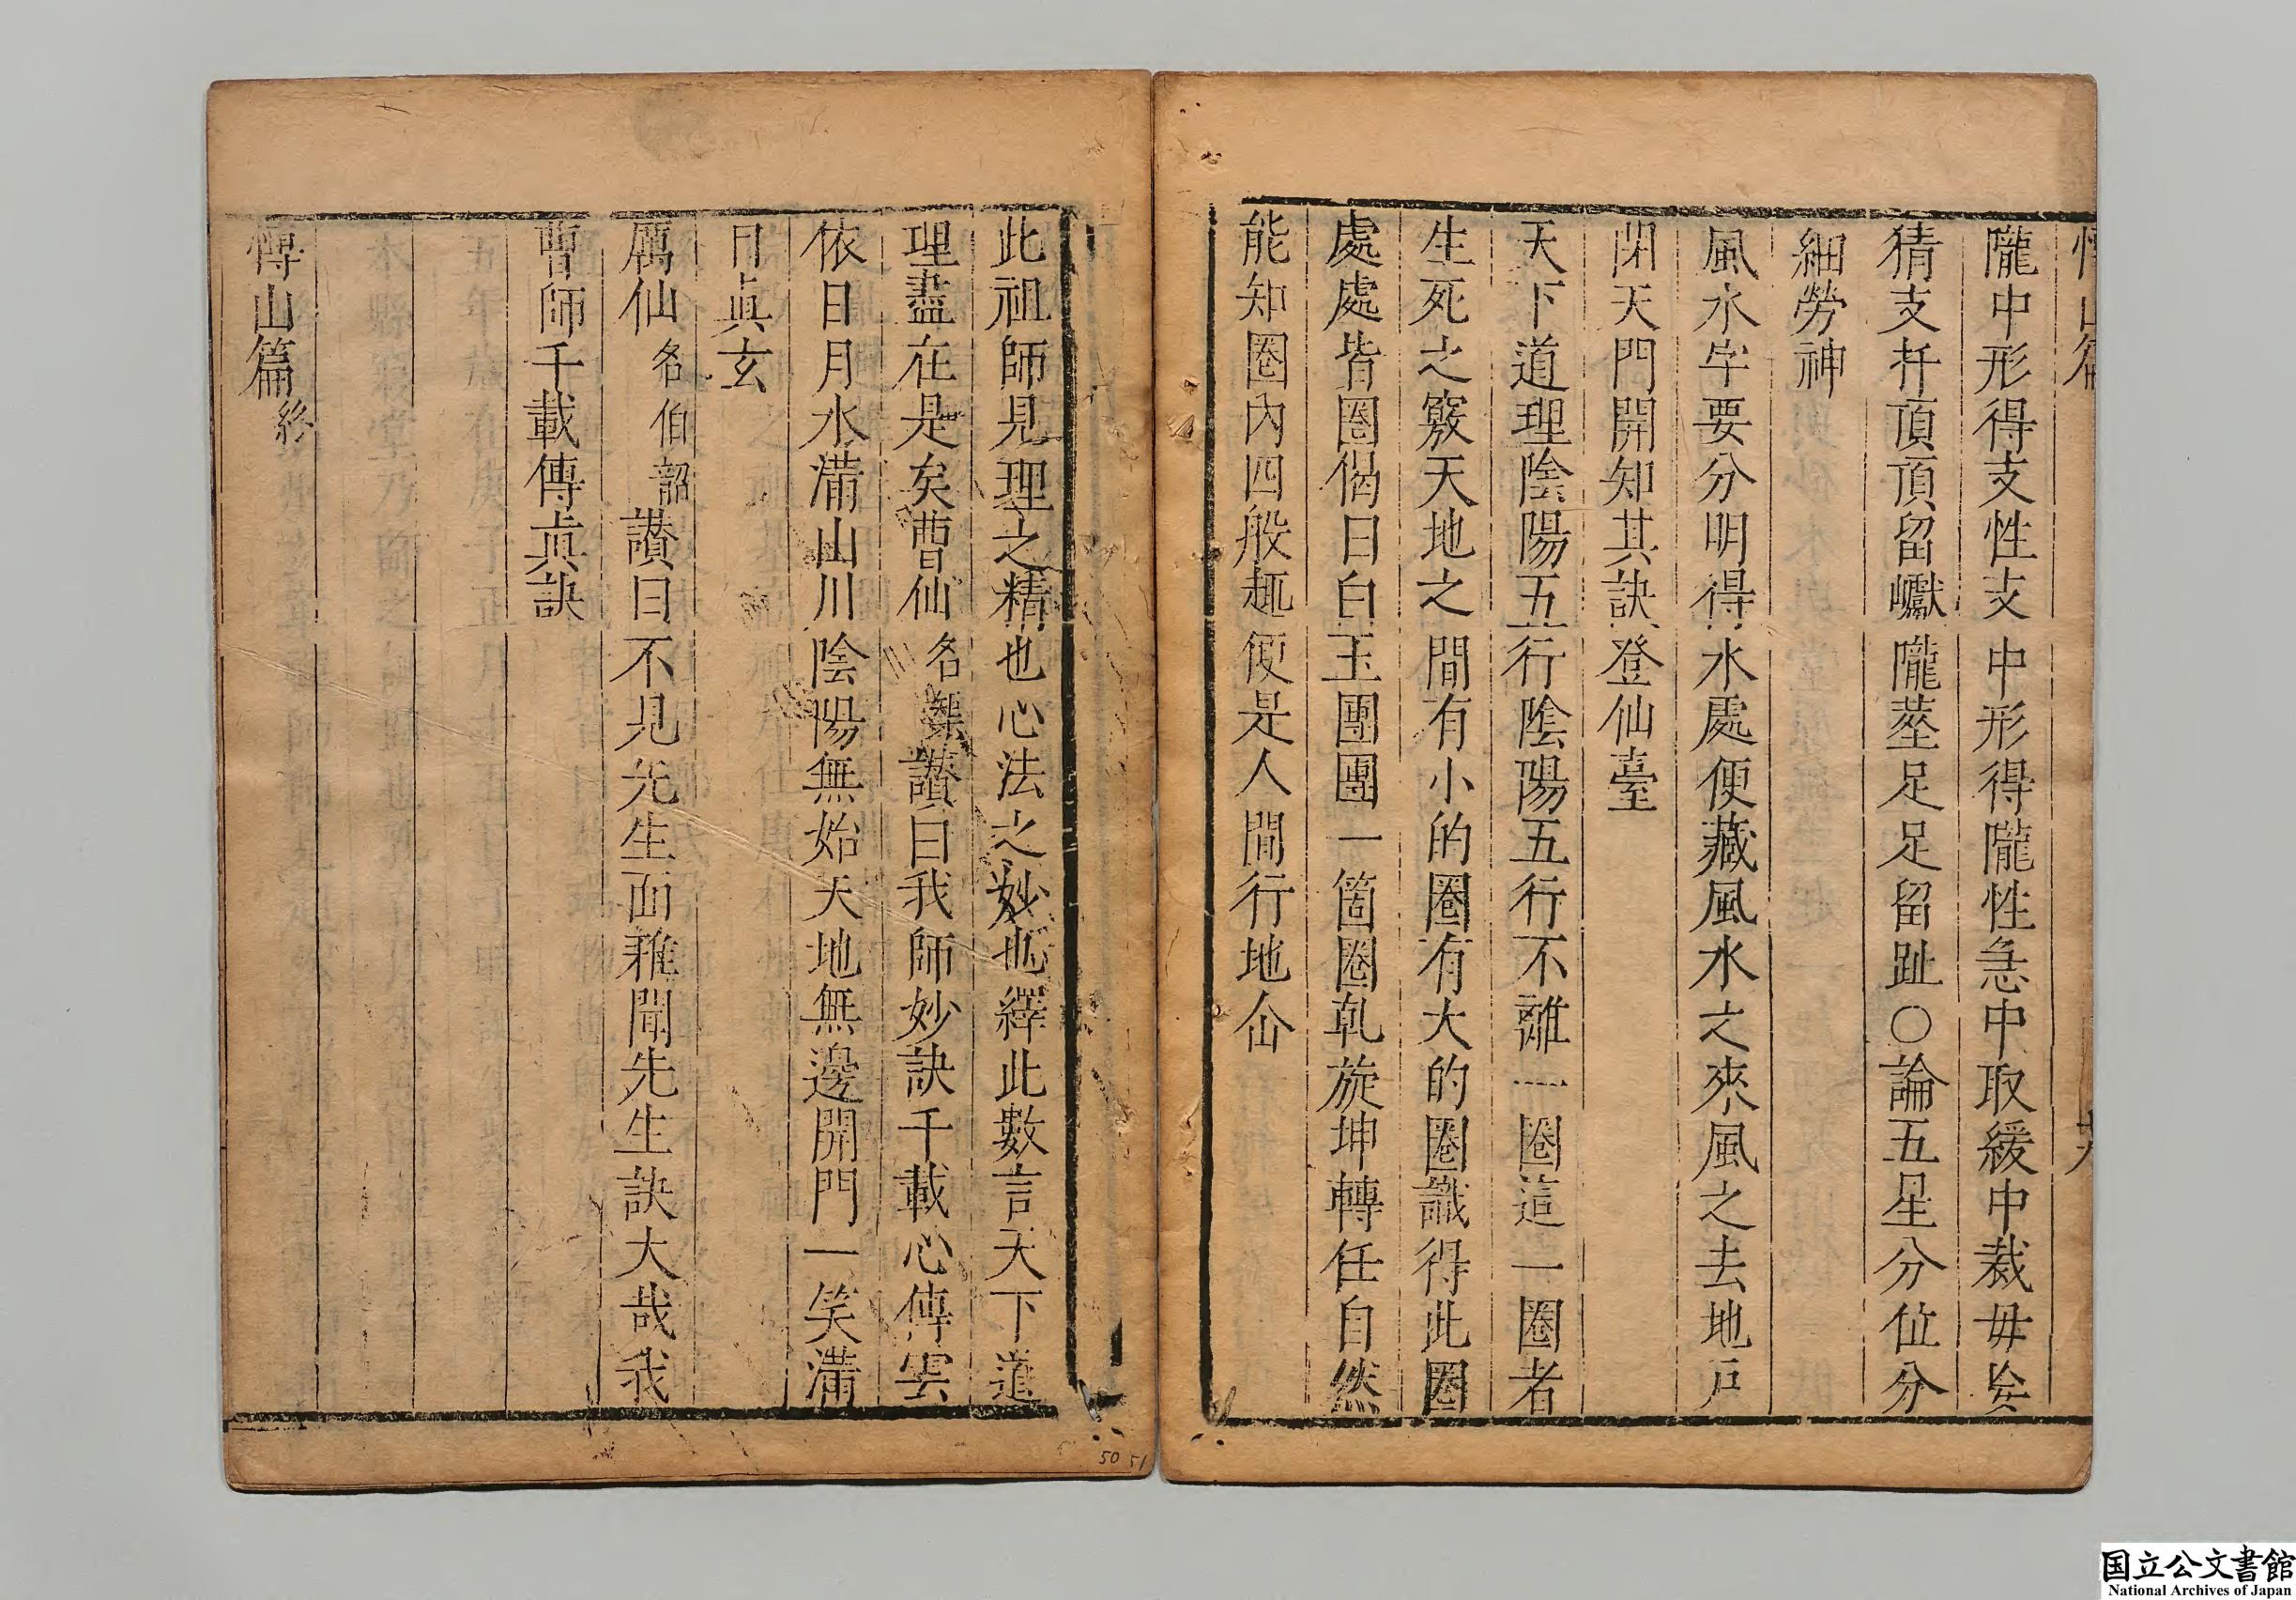 隴中形得支性支中形得隴性急中取緩中裁毋妄
猜支杵頂頂留巘隴莝足足留趾〇論五星分位分
細勞神
風水字要分明得水處便藏風水之來風之去地戶
閉天門開知其訣登仙臺
天下道理陰陽五行陰陽五行不離一圈這一圈者
生死之竅天地之間有小的圈有大的圈識得此圈
處處皆圈偈曰白玉團團一箇圈乹旋坤轉任自然
能知圈內四般趣便是人間行地仚
此祖師見理之精也心法之妙也繹此數言天下道
理盡在是矣曹仙名 讃曰我師妙訣千載心傳雲
依日月水滿山川陰陽無始天地無邊開門一笑滿
目眞玄
厲仙名伯韶讃曰不見先生面稚聞先生訣大哉我
曹師千載傳眞訣
山篇終
国立公文書館
National Archives of Japan
50 51